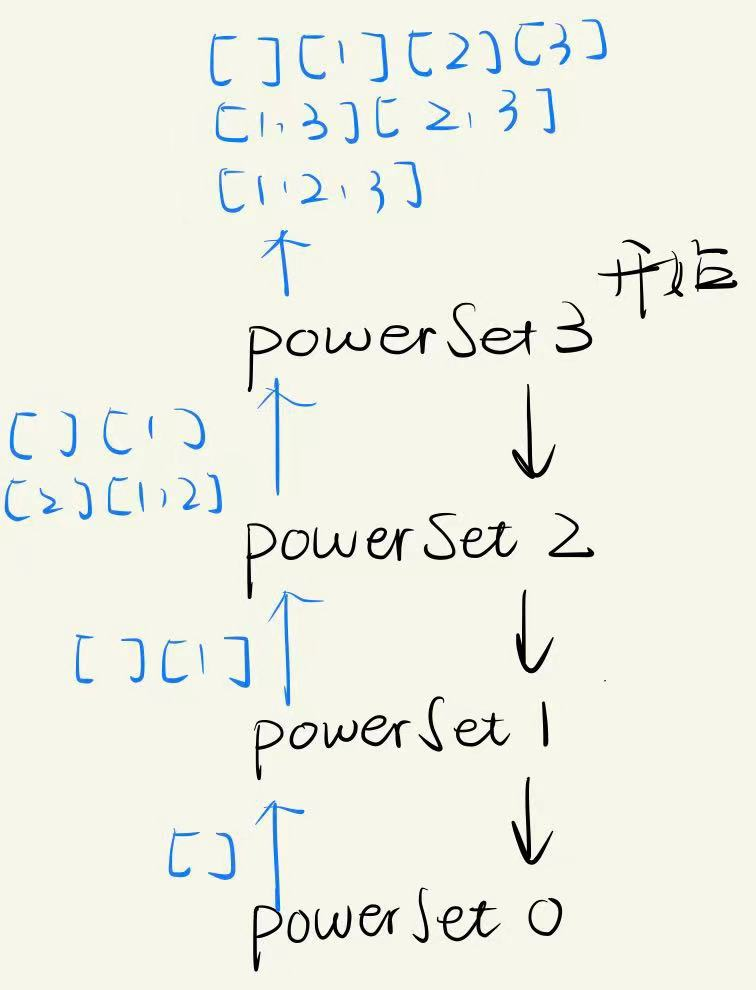 [ ] [1] [2] [3]
[1,3] [2,3]
[1,2,3]
开始
powerSet 3
[ ] [1]
[2] [1,2]
powerSet 2
[ ] [1]
powerSet 1
[ ]
powerSet 0